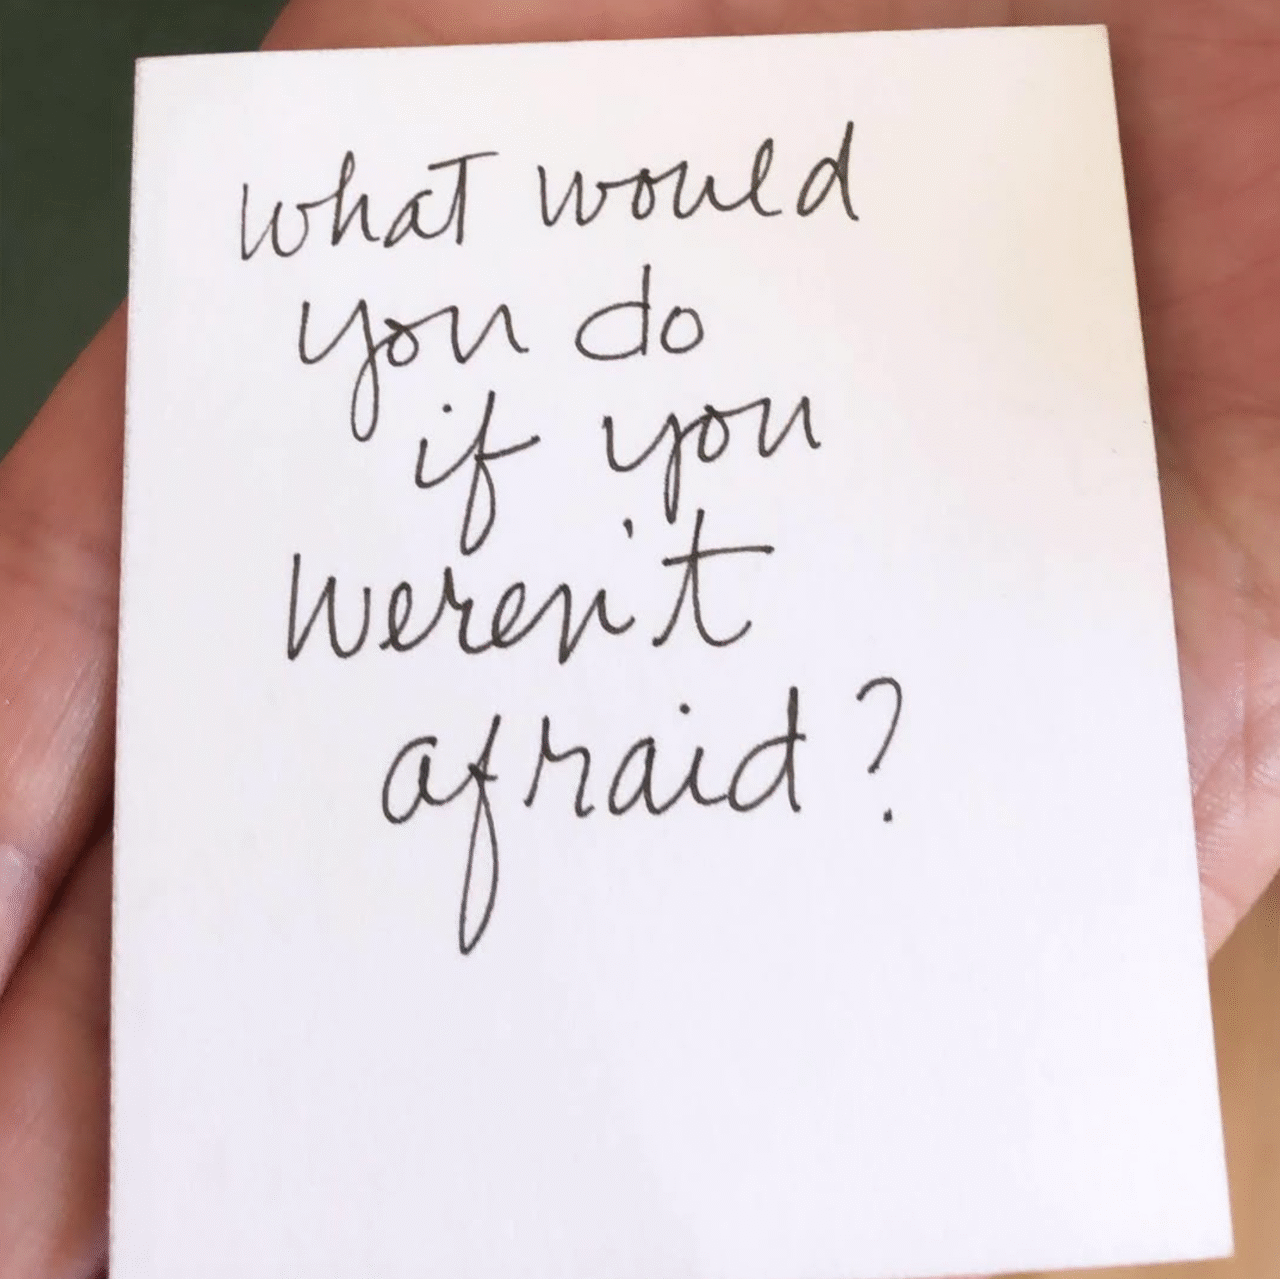 what would
you do
if you
weren't
afraid?